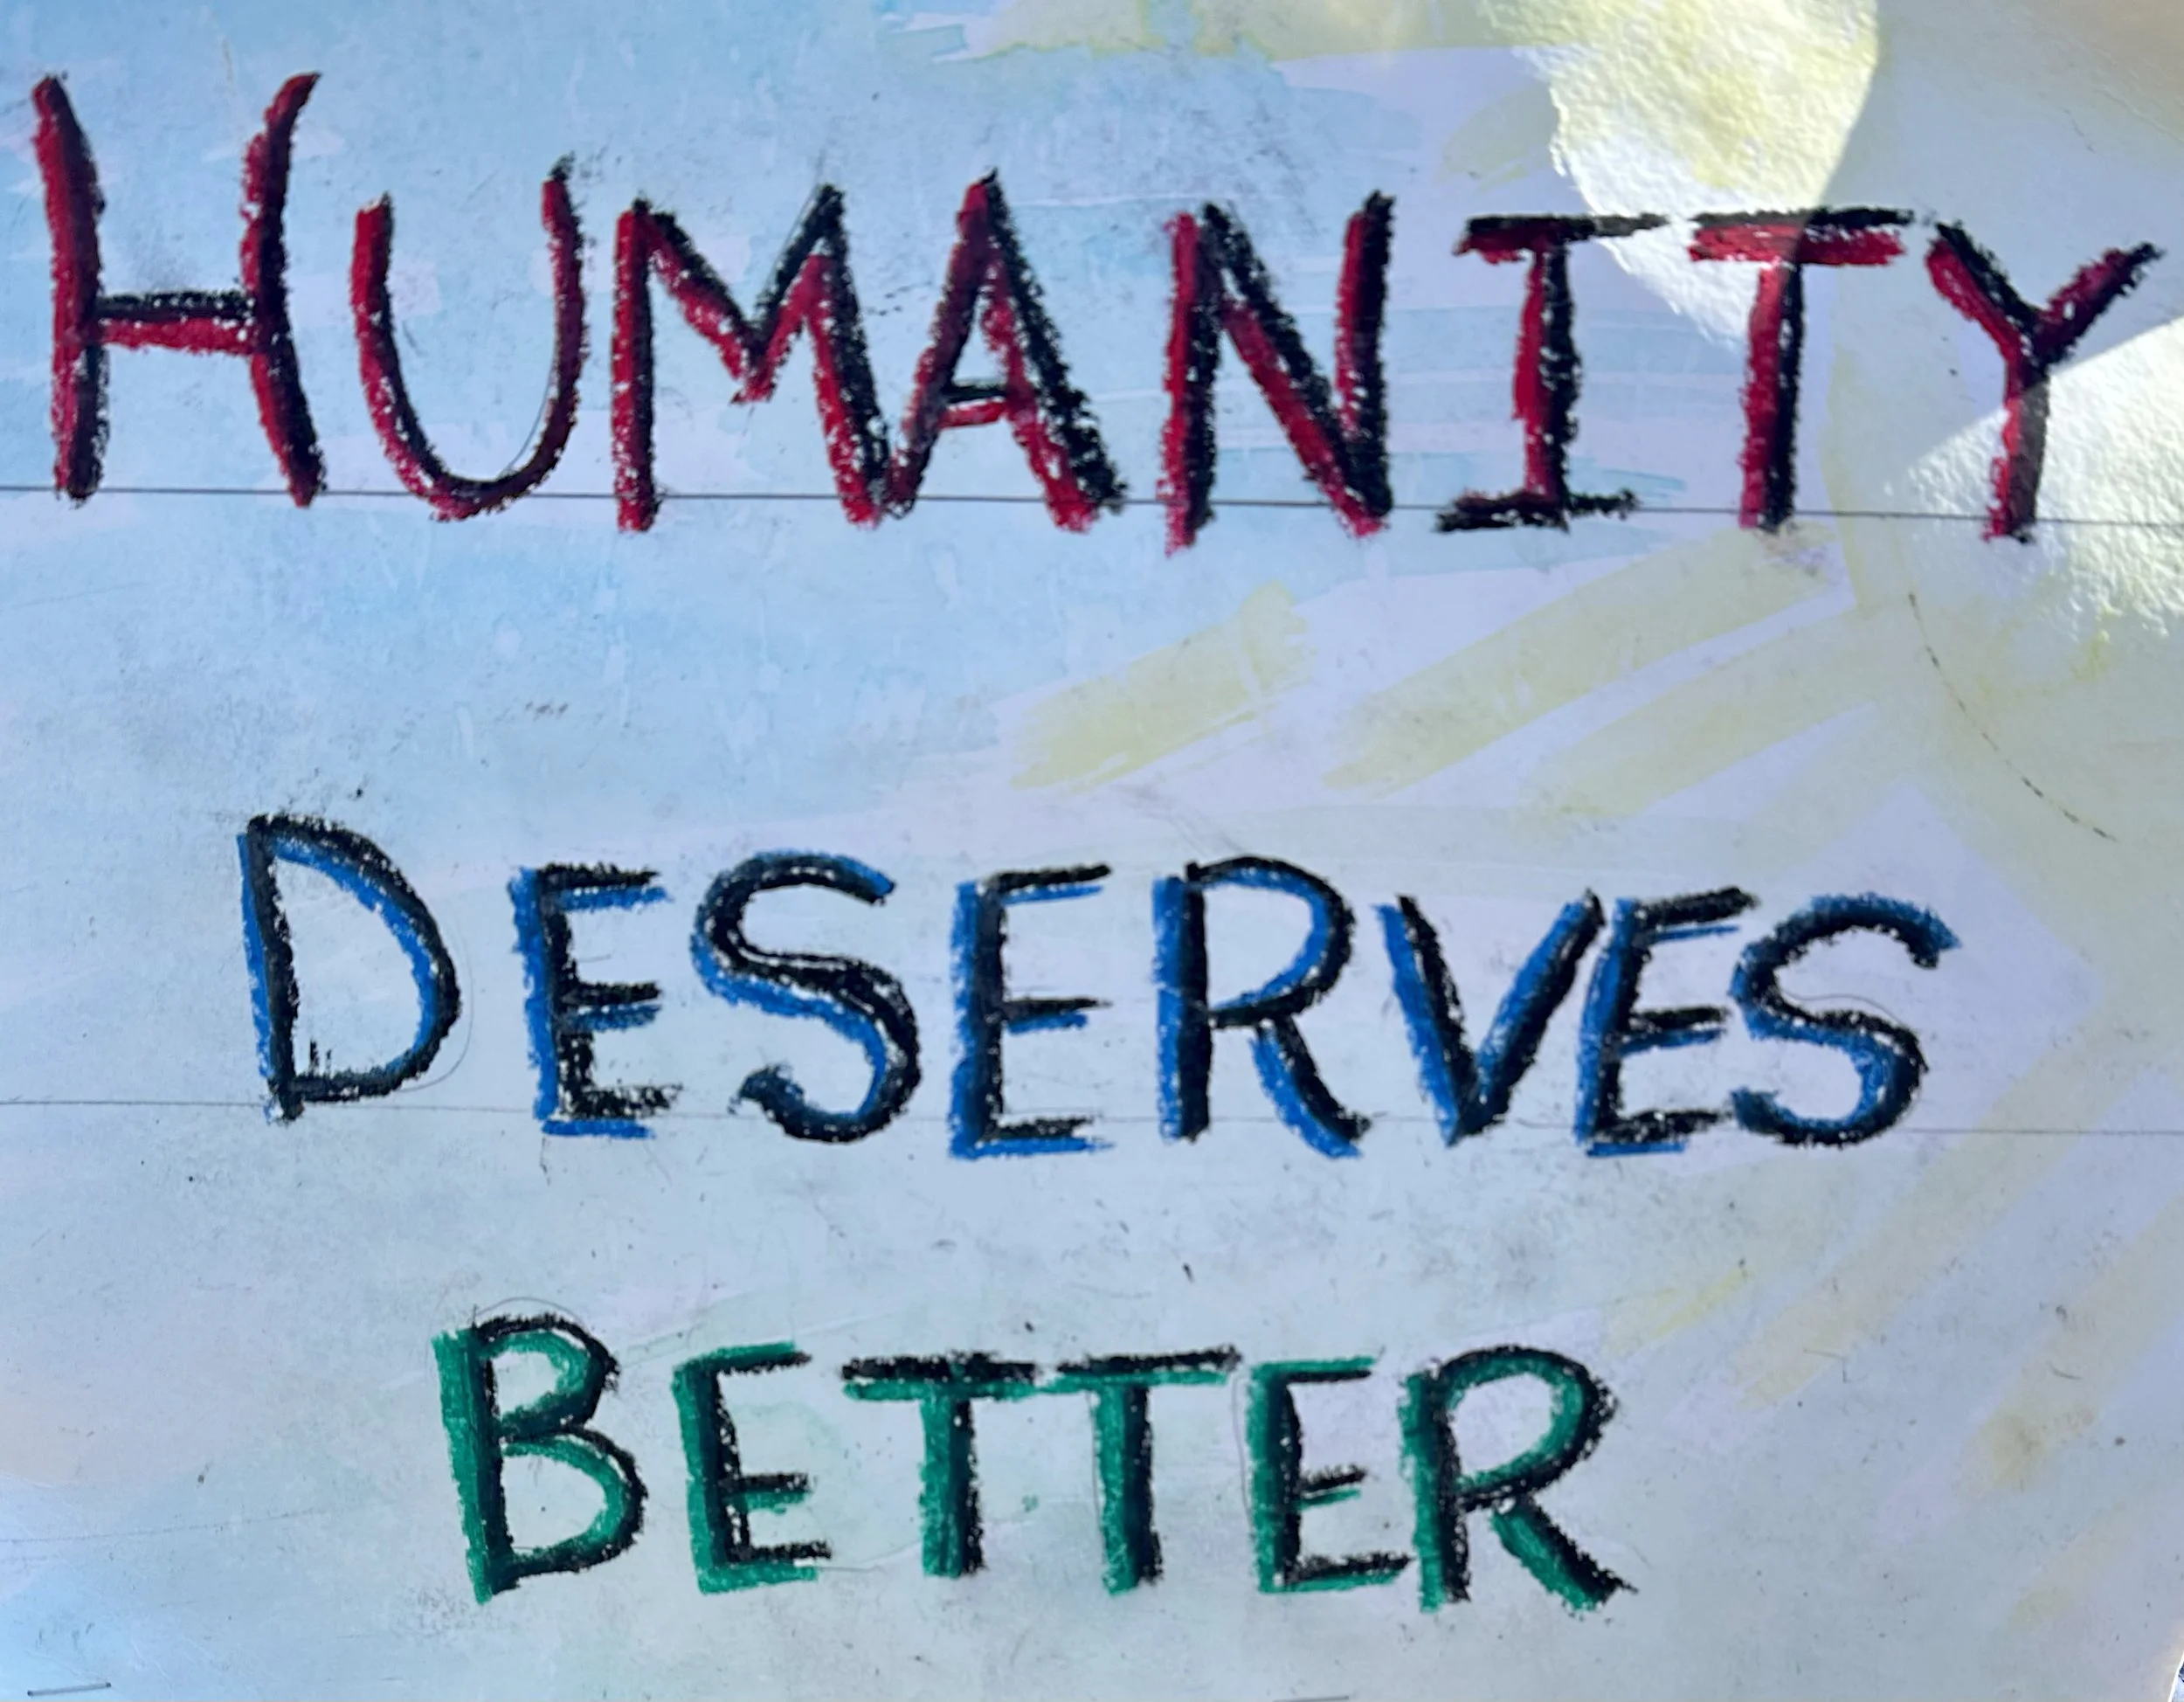 HUMANITY
DESERVES
BETTER